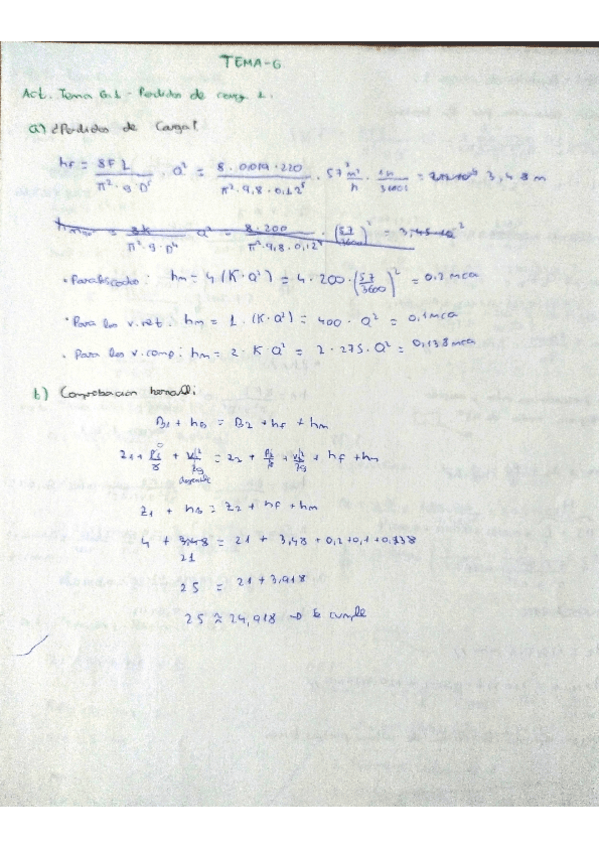 TEMA-6
Act. Tema 6.1 - Perdidas de carga 1.
a) ¿Perdidas de Carga?
hf = 8 F L / π² · g · D⁵ · Q² = 8 · 0,019 · 220 / π² · 9,8 · 0,12⁵ · 57² m³/h · 1h/3600s = 3,48 m
8K / π² · g · D⁴ Q² = 8 · 200 / π² · 9,8 · 0,12⁴ · (57/3600)² = 3,45
hm = 4 (K · Q²) = 4 · 200 · (57/3600)² = 0,2 mca
· Para los v. ret.: hm = 1 · (K · Q²) = 400 · Q² = 0,1 mca
· Para los v. comp: hm = 2 · K · Q² = 2 · 275 · Q² = 0,138 mca
b) Comprobacion bernoulli:
B1 + hB = B2 + hf + hm
Z1 + P1/γ + V1²/2g = Z2 + P2/γ + V2²/2g + hf + hm
Z1 + hB = Z2 + hf + hm
4 + 3,48 = 21 + 3,48 + 0,2 + 0,1 + 0,138
21
25 = 21 + 3,918
25 ≈ 24,918 → Se cumple